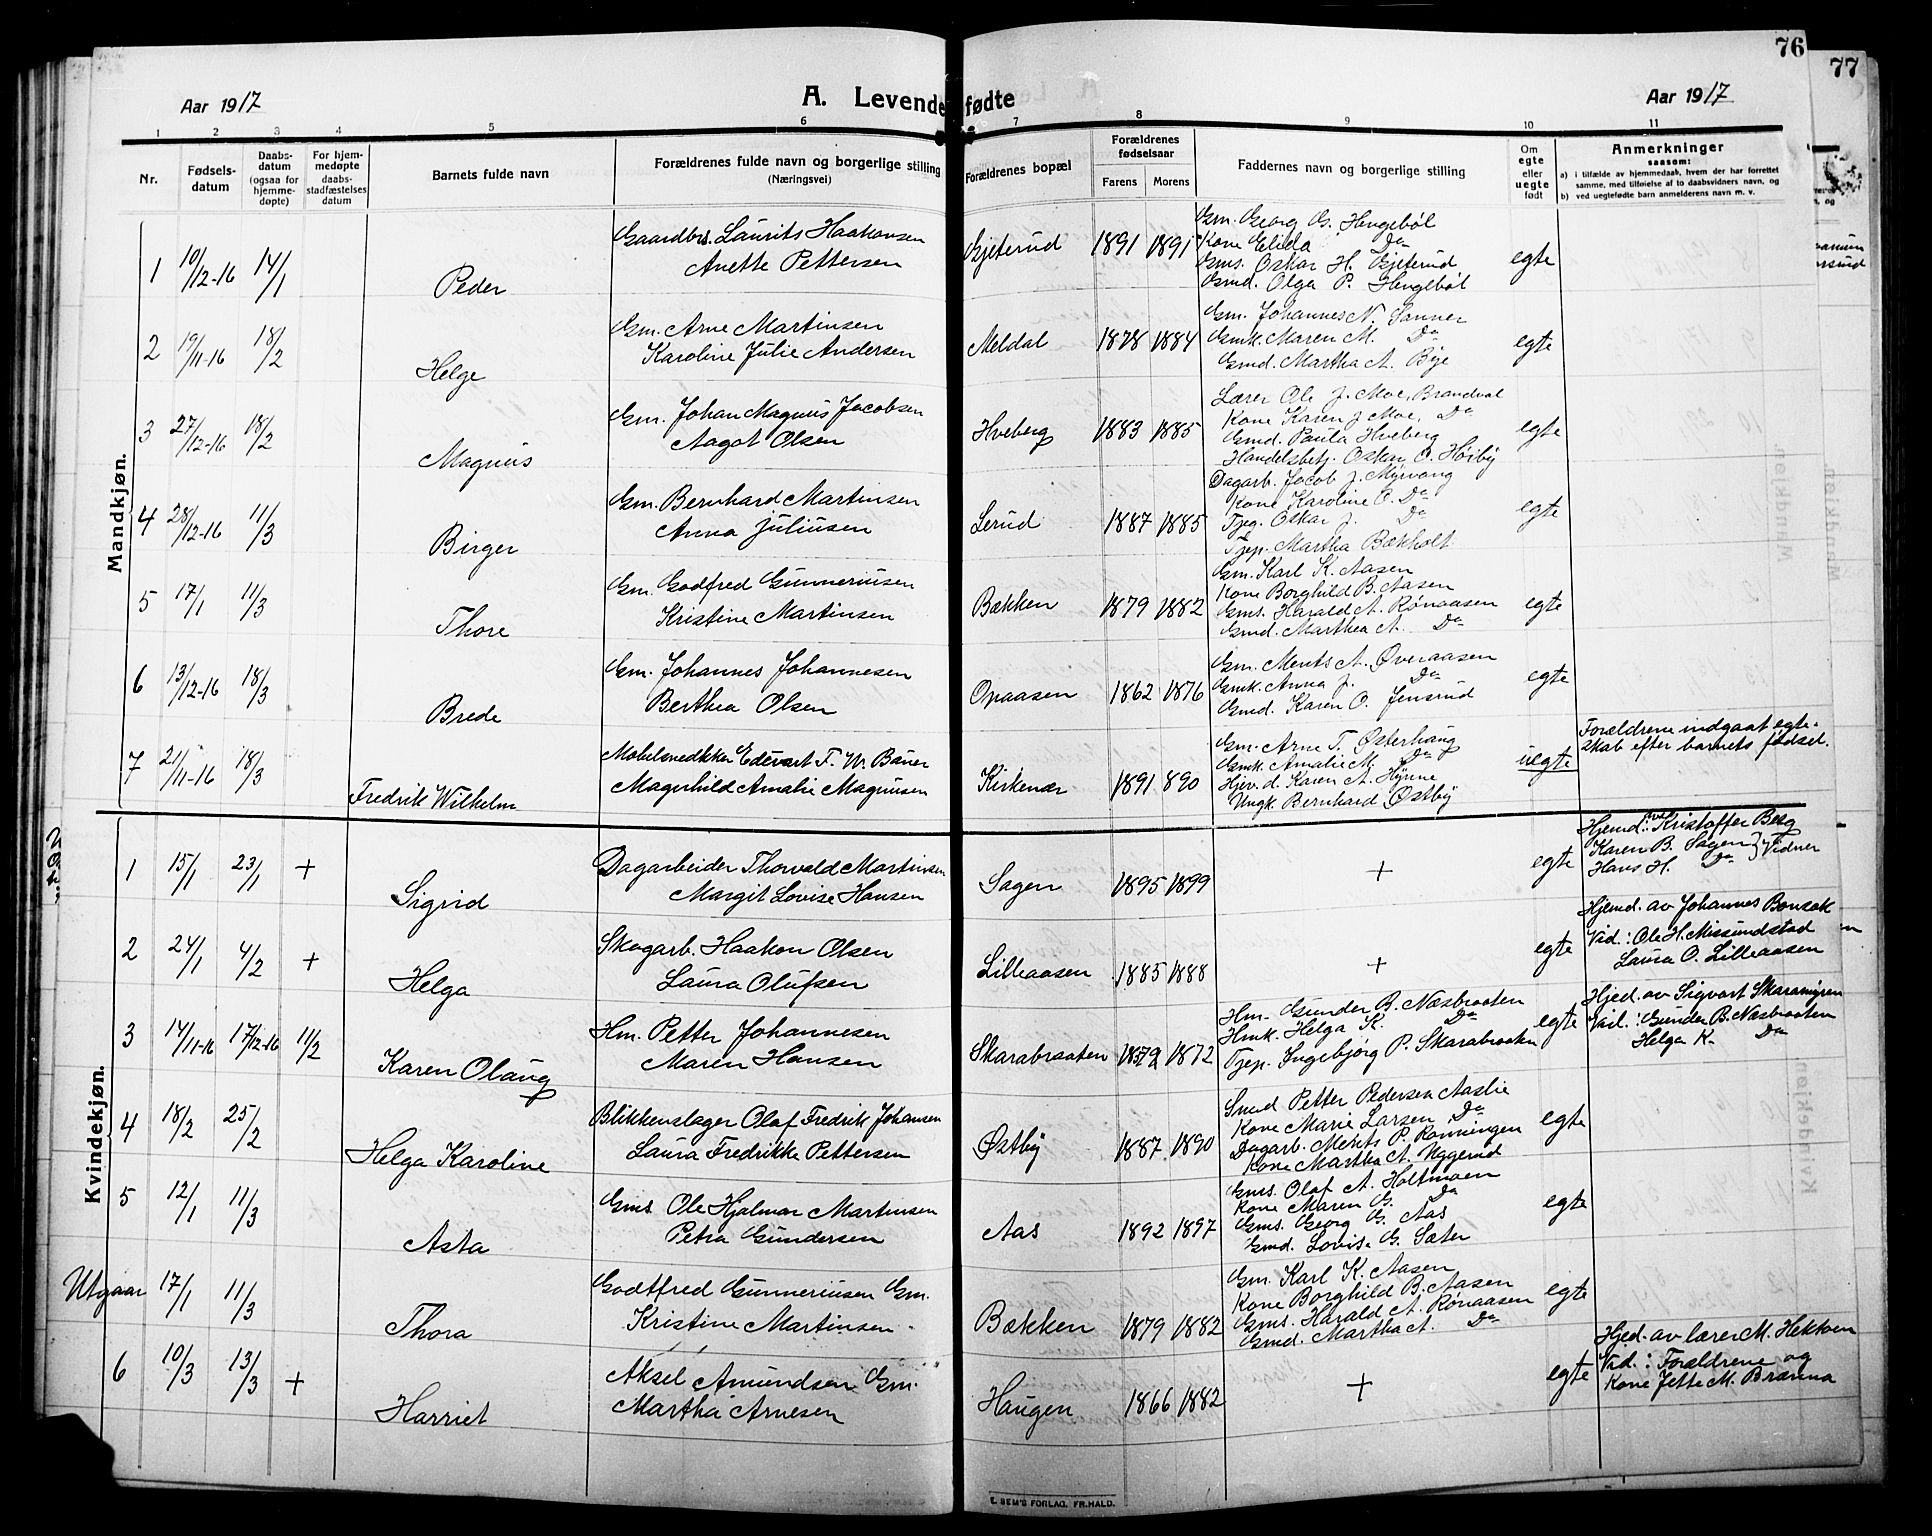 76
77
Aar 1917
A. Levende fødte
Aar 1917
1 2 3 4 5 6 7 8 9 10 11
Nr.
Fødsels-
datum
Daabs-
datum
(ogsaa for
hjemme-
døpte)
For hjem-
medøpte
daabs-
stadfæstelses
datum
Barnets fulde navn
Forældrenes fulde navn og borgerlige stilling
(Næringsvei)
Forældrenes bopæl
Forældrenes
fødselsaar
Farens
Morens
Faddernes navn og borgerlige stilling
Om
egte
eller
uegte
født
Anmerkninger
saasom:
a) i tilfælde av hjemmedaab, hvem der har forrettet
samme, med tilføielse af to daabsvidners navn, og
b) ved uegtefødte barn anmelderens navn m. v.
Mandkjøn.
1 10/12-16 14/1 Peder
Gaardbr. Laurits Haakonsen
Anette Pettersen
Gjeterud 1891 1891
Gm. Georg G. Hengebøl
Kone Elida Do
Gms. Oskar H. Gjeterud
Gmd. Olga P. Hengebøl
egte
2 19/11-16 18/2 Helge
Gm. Arne Martinsen
Karoline Julie Andersen
Meldal 1878 1884
Gm. Johannes N. Sanner
Gmk. Maren M. Do
Gmd. Martha A. Bye
egte
3 27/12-16 18/2 Magnus
Gm. Johan Magnus Jacobsen
Aagot Olsen
Hveberg 1883 1885
Lærer Ole J. Moe, Brandval
Kone Karen J. Moe, Do
Gmd. Paula Hveberg
Handelsbetj. Oskar O. Høiby
egte
4 28/12-16 11/3 Birger
Gm. Bernhard Martinsen
Anna Juliusen
Lerud 1887 1885
Dagarb. Jacob J. Myrvang
Kone Karoline O. Do
Tjeg. Oskar J. Do
Tjep. Martha Bækholt
egte
5 17/1 11/3 Thore
Gm. Godfred Gunneriusen
Kristine Martinsen
Bækken 1879 1882
Gm. Karl K. Aasen
Kone Borghild B. Aasen
Gms. Harald A. Rønaasen
Gmd. Marthea A. Do
egte
6 13/12-16 18/3 Brede
Gm. Johannes Johannesen
Berthea Olsen
Opaasen 1862 1876
Gm. Ments A. Øveraasen
Gmk. Anna J. Do
Gmd. Karen O. Jensrud
egte
7 21/11-16 18/3 Fredrik Wilhelm
Møbelsnedkker Edevart F. W. Bauer
Magnhild Amalie Magnusen
Kirkenær 1891 890
Gm. Arne T. Østerhaug
Gmk. Amalie M. Do
Hjev. d. Karen A. Hynne
Ungk. Bernhard Østby
uegte
Forældrene indgaat egte-
skab efter barnets fødsel.
Kvindekjøn.
1 15/1 23/1 + Sigrid
Dagarbeider Thorvald Martinsen
Margit Lovise Hansen
Sagen 1895 1899
+
egte
Hjemd: av Kristoffer Berg
Karen B. Sagen } Vidner
Hans H. Do
2 24/1 4/2 + Helga
Skogarb. Haakon Olsen
Laura Olufsen
Lilleaasen 1885 1888
+
egte
Hjemd. av Johannes Bonsak
Vid.: Ole H. Missundstad
Laura O. Lilleaasen
3 14/11-16 17/12-16 11/2 Karen Olaug
Hm. Petter Johannesen
Maren Hansen
Skarabraaten 1872 1872
Hm. Gunder B. Næsbraaten
Hmk. Helga K. Do
Tjep. Ingebjørg P. Skarabraaten
egte
Hjed. av Sigvart Skaramyren
Vid.: Gunder B. Næsbraaten
Helga K. Do
4 18/2 25/2 Helga Karoline
Blikkenslager Olaf Fredrik Johansen
Laura Fredrikke Pettersen
Østby 1887 1890
Smed Petter Pedersen Aaslie
Kone Marie Larsen Do
Dagarb. Ments P. Rønningen
Kone Martha A. Uggerud
egte
5 12/1 11/3 Asta
Gms. Ole Hjalmar Martinsen
Petra Gundersen
Aas 1892 1897
Gms. Olaf A. Holtmoen
Kone Maren G. Do
Gms. Georg G. Aas
Gmd. Lovise G. Sæter
egte
Utgaar 17/1 11/3 Thora
Godtfred Gunneriusen Gm.
Kristine Martinsen
Bækken 1879 1882
Gm. Karl K. Aasen
Kone Borghild B. Aasen
Gms. Harald A. Rønaasen
Gmd. Martha A. Do
egte
6 10/3 13/3 + Harriet
Aksel Amundsen Gm.
Martha Arnesen
Haugen 1866 1882
+
egte
Hjed. av lærer M. Hekkoen
Vid.: Forældrene og
Kone Jette M. Brænna
E. SEM'S FORLAG, FR.HALD.